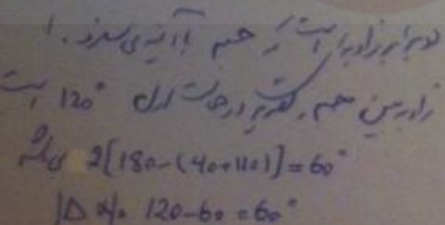 دو برابر زاویه‌ای است که جسم با آینه می‌سازد. ا
زاویه بین جسم و تصویر در حالت اول 120° است
2[180-(40+110)]=60°
|Δα|= 120-60=60°